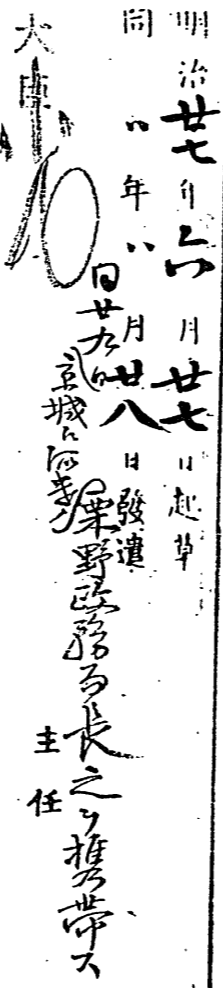 明治廿七年六月廿七日起草
同〃年〃月廿八日發遣
同廿九日
京城ニ
栗野政務局長之ヲ携帯ス
主任
大臣